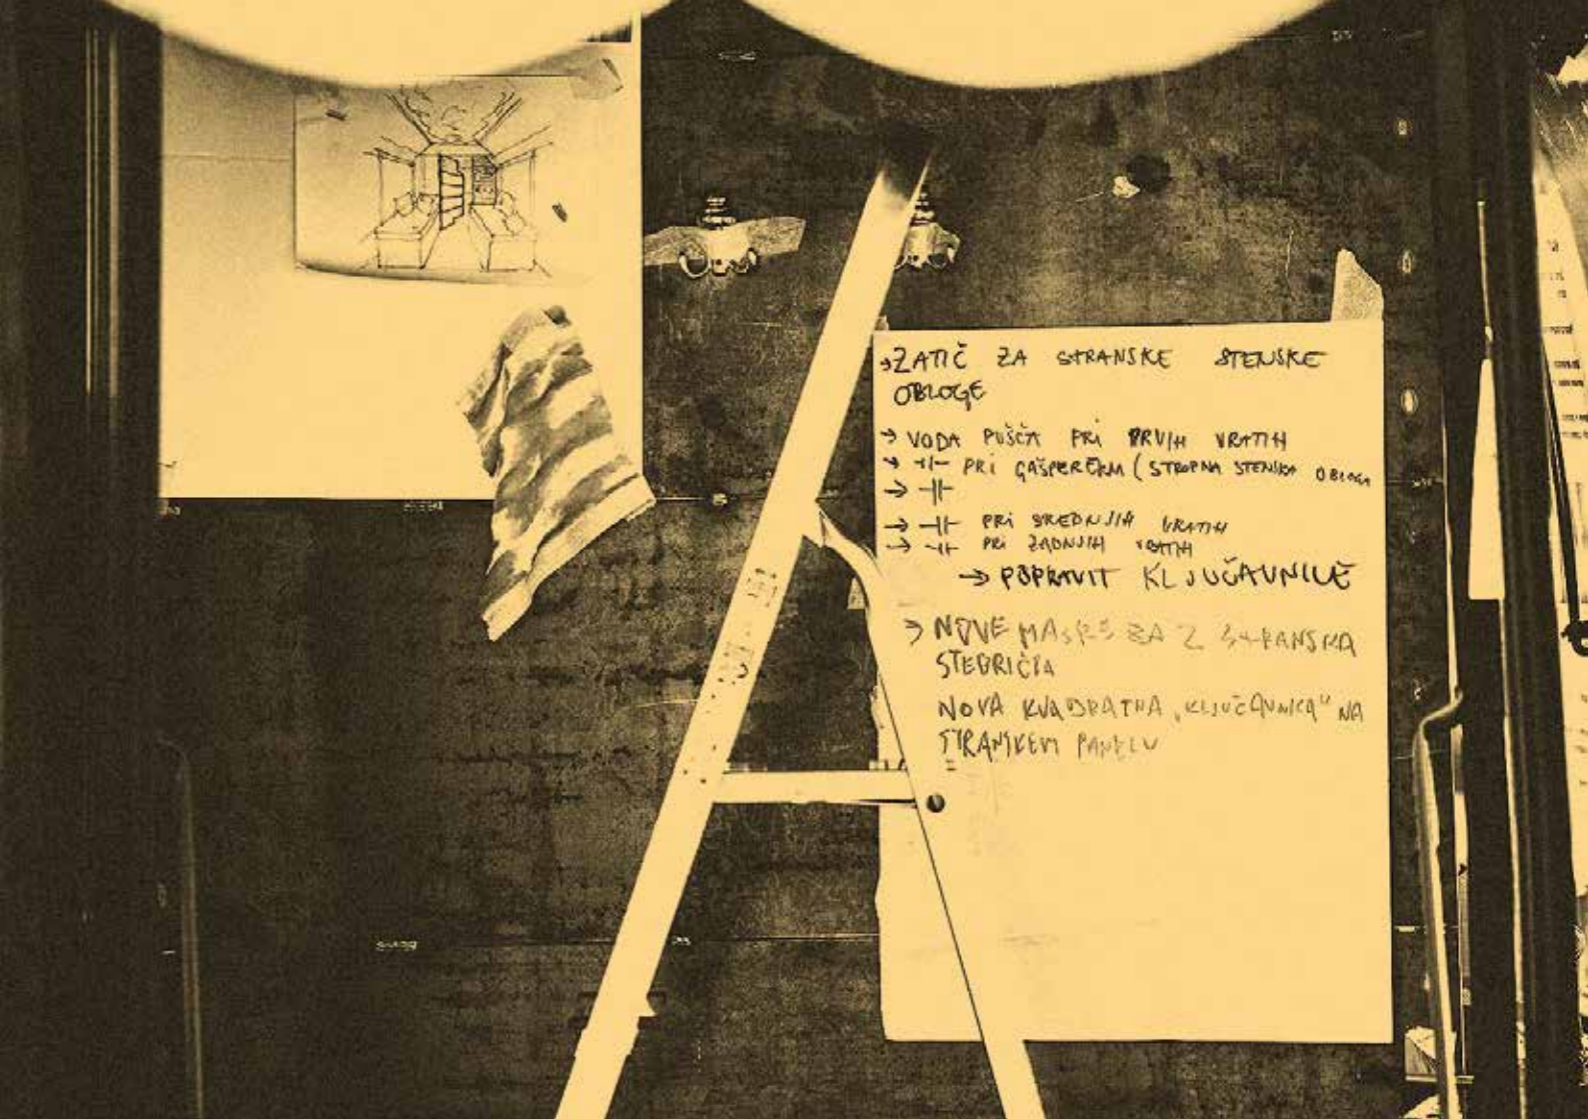 → ZATIČ ZA STRANSKE STENSKE
OBLOGE
→ VODA PUŠČA PRI PRVIH VRATIH
→ -||- PRI GAŠPERČKU (STROPNA STENSKA OBLOGA
→ -||-
→ -||- PRI SREDNJIH VRATIH
→ -||- PRI ZADNJIH VRATIH
→ POPRAVIT KLJUČAVNICE
→ NOVE MASKE ZA 2 STRANSKA
STEBRIČKA
NOVA KVADRATNA „KLJUČAVNICA" NA
STRANSKEM PANELU